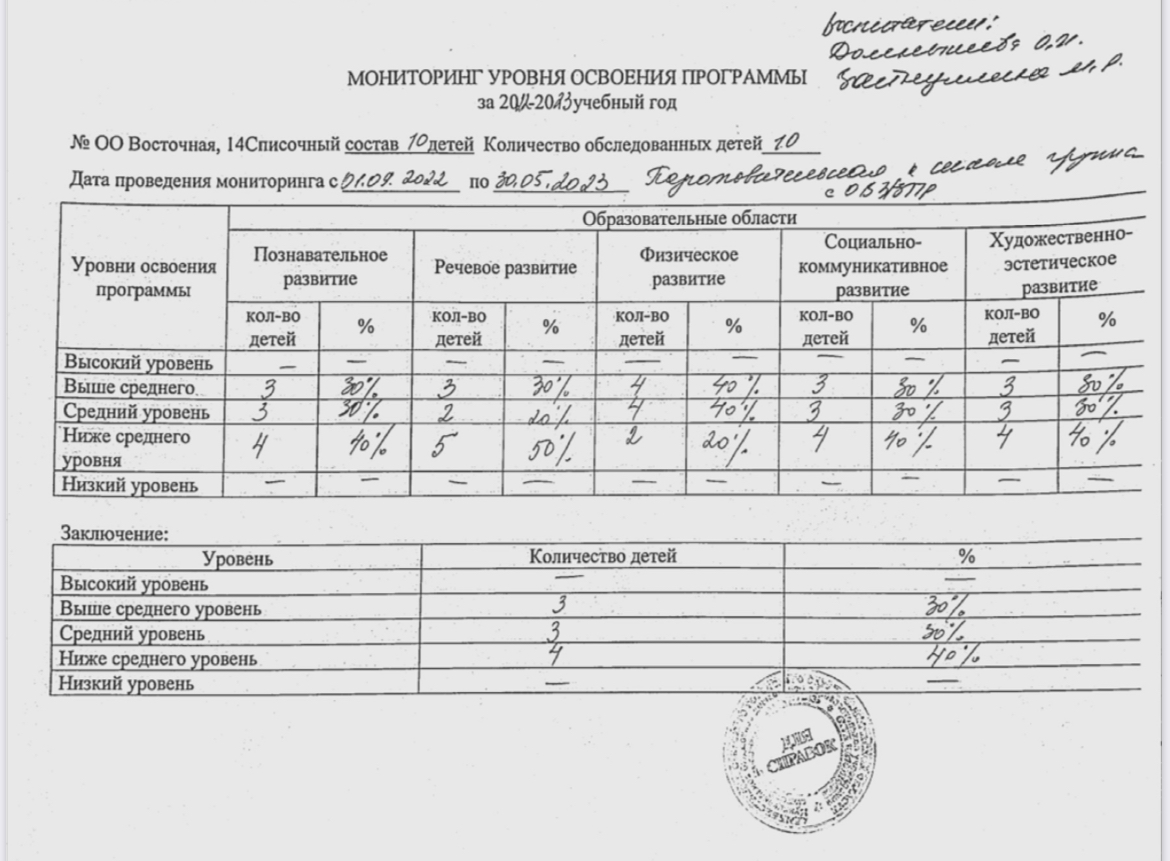 Воспитатели:
О.И.
М.Р.
МОНИТОРИНГ УРОВНЯ ОСВОЕНИЯ ПРОГРАММЫ
за 2022-2023 учебный год
№ ОО Восточная, 14Списочный состав 10 детей Количество обследованных детей 10
Дата проведения мониторинга с 01.09.2022 по 30.05.2023 Подготовительная к школе группа
с ОВЗ/ЗПР
Уровни освоения программы Образовательные области
Познавательное развитие Речевое развитие Физическое развитие Социально-коммуникативное развитие Художественно-эстетическое развитие
кол-во детей % кол-во детей % кол-во детей % кол-во детей % кол-во детей %
Высокий уровень — — — — — — — — — —
Выше среднего 3 30% 3 30% 4 40% 3 30% 3 30%
Средний уровень 3 30% 2 20% 4 40% 3 30% 3 30%
Ниже среднего уровня 4 40% 5 50% 2 20% 4 40% 4 40%
Низкий уровень — — — — — — — — — —
Заключение:
Уровень Количество детей %
Высокий уровень — —
Выше среднего уровень 3 30%
Средний уровень 3 30%
Ниже среднего уровень 4 40%
Низкий уровень — —
ДЛЯ
СПРАВОК